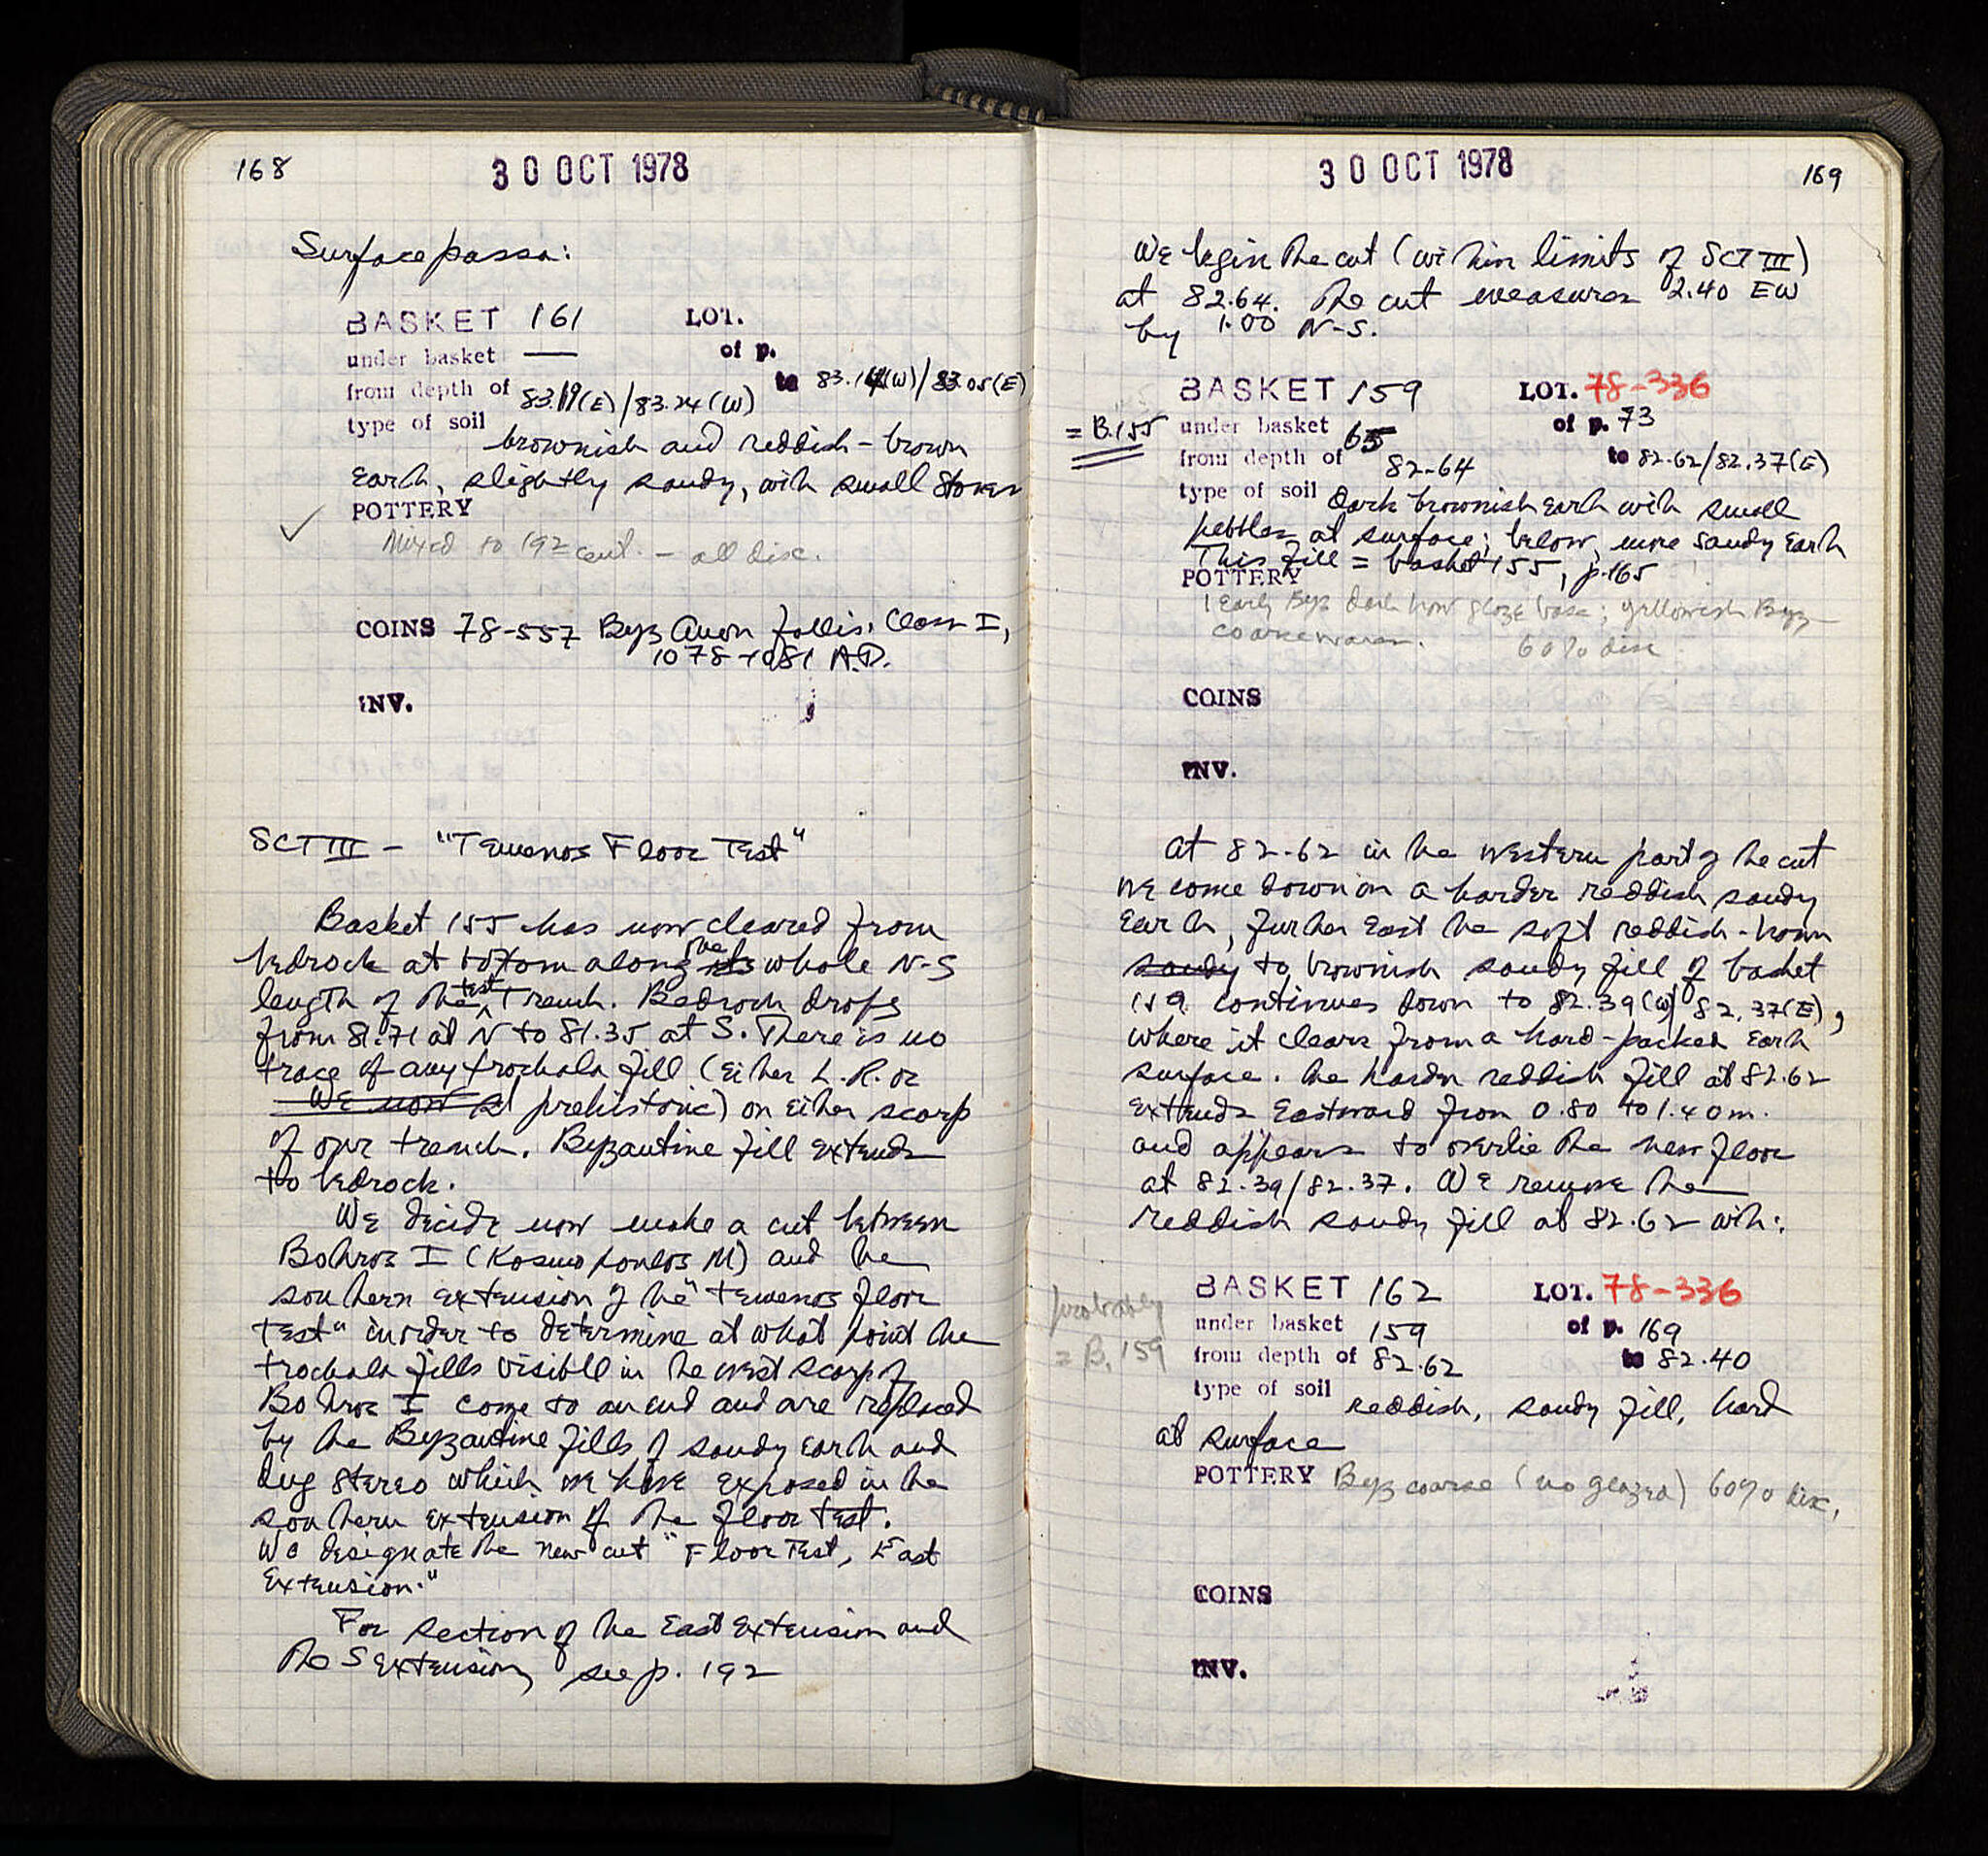 168
30 OCT 1978
Surface passa:
BASKET 161 LOT.
under basket — of p.
from depth of 83.19(E)/83.24(W) to 83.14(W)/83.05(E)
type of soil brownish and reddish-brown
Earth, slightly sandy, with small stones
POTTERY
✓ Mixed to 19th cent. – all disc.
COINS 78-557 Byz Anon follis, Class I,
1078-1081 A.D.
INV.
SCT III – "Temenos Floor Test"
Basket 155 has now cleared from
bedrock at bottom along the its whole N-S
length of the test trench. Bedrock drops
from 81.71 at N to 81.35 at S. There is no
trace of any trochala fill (either L.R. or
We now prehistoric) on either scarp
of our trench. Byzantine fill extends
to bedrock.
We decide now make a cut between
Bothros I (Kosmopoulos M) and the
southern extension of the "temenos floor
test" in order to determine at what point the
trochala fills visible in the west scarp of
Bothros I come to an end and are replaced
by the Byzantine fills of sandy earth and
dug stereo which we have exposed in the
southern extension of the floor test.
We designate the new cut "Floor Test, East
Extension."
For section of the East extension and
the S extension, see p. 192
30 OCT 1978
169
We begin the cut (within limits of SCT III)
at 82.64. The cut measures 2.40 EW
by 1.00 N-S.
BASKET 159 LOT. 78-336
= B.155 under basket 65 of p. 73
from depth of 82-64 to 82-62/82.37(E)
type of soil Dark brownish earth with small
pebbles at surface; below, more sandy earth
This fill = basket 155, p.165
POTTERY
1 Early Byz dark brow glaze base; yellowish Byz
coarse wares. 60% disc
COINS
INV.
At 82-62 in the western part of the cut
we come down on a harder reddish sandy
earth, further East the soft reddish-brown
sandy to brownish sandy fill of basket
159 continues down to 82.39(W)/82.37(E),
where it clears from a hard-packed earth
surface. The harder reddish fill at 82.62
extends Eastward from 0.80 to 1.40 m.
and appears to overlie the new floor
at 82.39/82.37. We remove the
reddish sandy fill at 82.62 with:
BASKET 162 LOT. 78-336
probably under basket 159 of p. 169
= B. 159 from depth of 82.62 to 82.40
type of soil reddish, sandy fill, hard
at surface
POTTERY Byz coarse (no glazed) 60% disc.
COINS
INV.